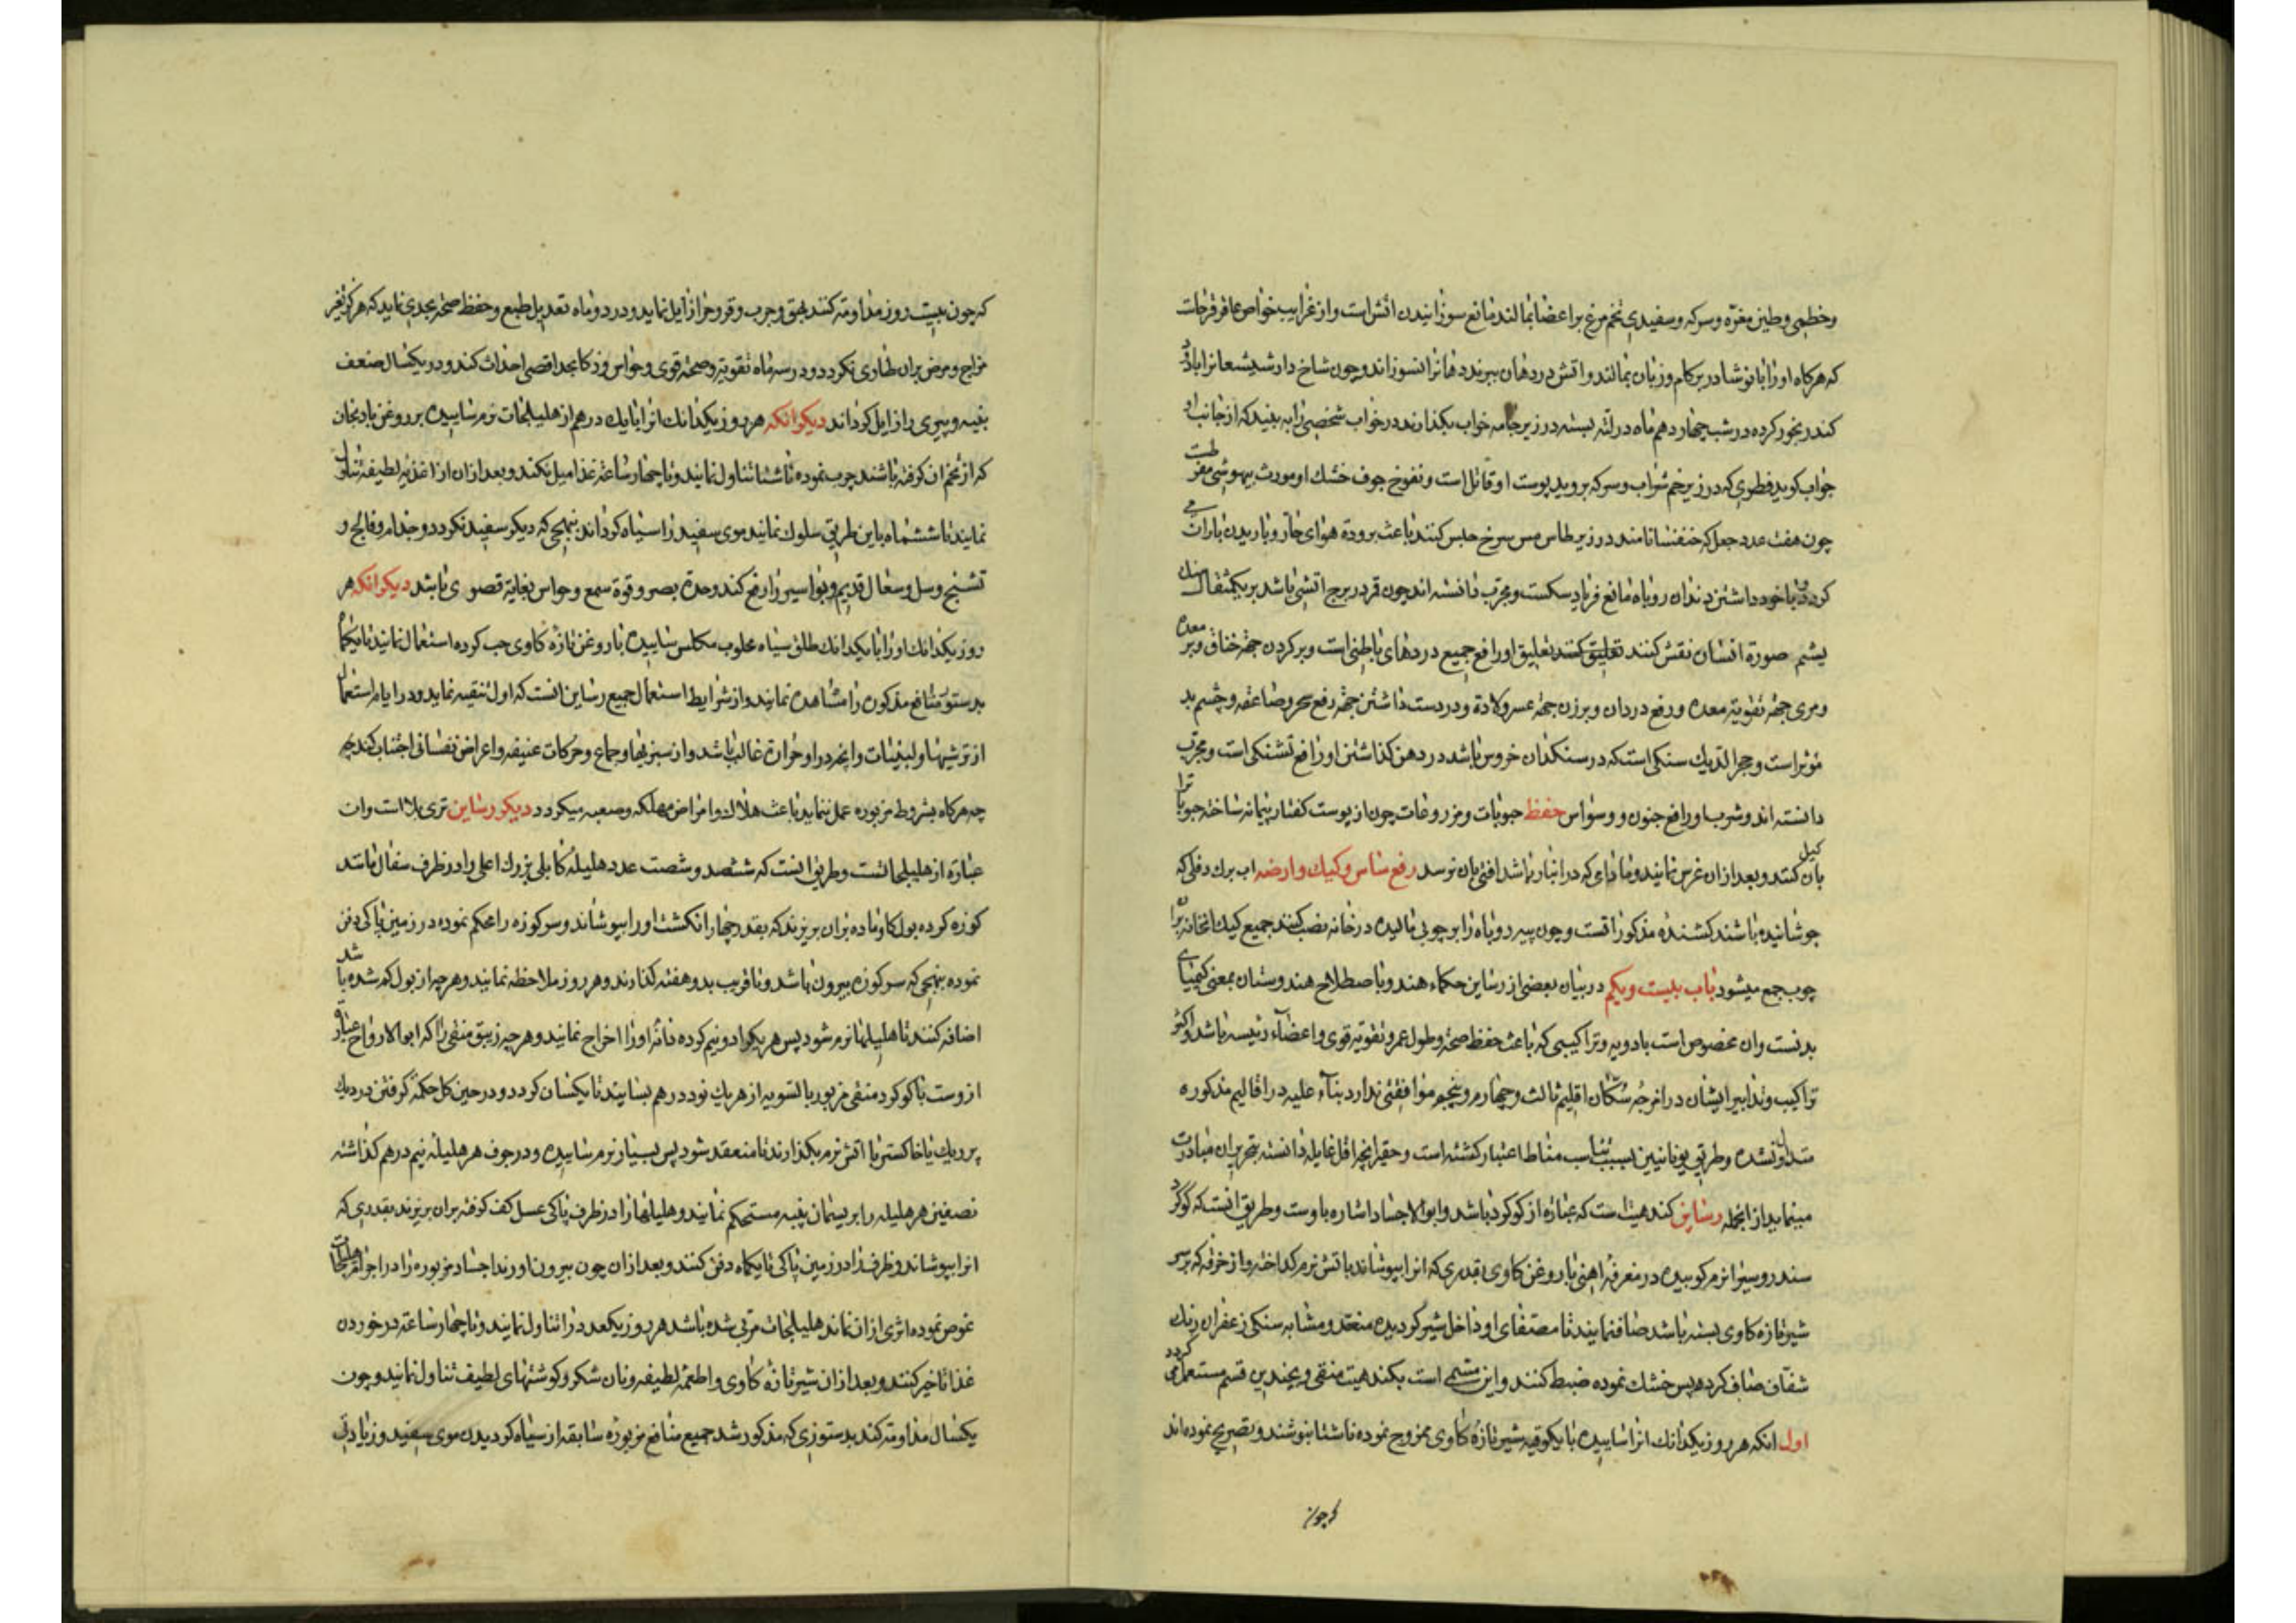 وخطمی وطین مغرّه وسرکه وسفیدی تخم مرغ بر اعضا بمالند مانع سوزانیدن اتش است واز غرایب خواص عاقرقرحاست
که هرکاه اورا با نوشادر برکام وزبان بمالند واتش در دهان ببرند دهانرا نسوزاند وچون شاخ دار شیشعانرا بادو
کندر بخور کرده در شب چهاردهم ماه در لته بسته در زیر جامه خواب بکذارند در خواب شخصی را به بیند که از جانب او
جواب کوید فطری که در زیر خم شراب وسرکه بروید پوست او قاتل است ونفوخ جوف خشک او مورث بیهوشی مفرطست
چون هفت عدد جعل که خنفسا نامند در زیر طاس مس سرخ حبس کنند باعث برودة هوای حار وباریدن باران می
کردد وبا خود داشتن دندان روباه مانع فریاد سکست ومجرب دانسته اند چون قمر در برج اتشی باشد بر یکمثقال سنک
یشم صورة انسان نقش کنند تعلیق کنند تعلیق او رافع جمیع دردهای باطنی است وبر کردن جهة خناق وبر معده
ومری جهة تقویة معده ورفع درد ان وبر زن جهة عسر ولادة ودر دست داشتن جهة رفع سحر وصاعقه وچشم بد
مؤثر است وحجر الدیک سنکی است که در سنکدان خروس باشد در دهن کذاشتن او رافع تشنکی است ومجرب
دانسته اند وشرب او رافع جنون ووسواس حفظ حبوبات ومزروعات چون از پوست کفتار پیمانه ساخته حبوباترا
بان کیل کنند وبعد از ان غرس نمایند ومادامی که در انبار باشد افتی بان نرسد رفع ساس وکیک وارضه اب برک دفلی که
جوشانیده باشند کشنده مذکوراتست وچون پیه روباه را بر چوبی مالیده در خانه نصب کنند جمیع کیک انخانه بر ان
چوب جمع میشود باب بیست ویکم در بیان بعضی از رساین حکماء هند وباصطلاح هندوستان بمعنی کیمیای
بدنست وان مخصوص است بادویه وتراکیبی که باعث حفظ صحة وطول عمر وتقویة قوی واعضاء رئیسه باشد واکثر
تراکیب وتدابیر ایشان در امزجه سکان اقلیم ثالث وچهارم وپنجم موافقتی ندارد بناء علیه در اقالیم مذکوره
متداول نشده وطریق یونانیین بسبب تناسب مناط اعتبار کشته است وحقیر انچه اقل غایله دانسته بتحریر ان مبادرت
مینماید از انجمله رساین کندهیت است که عبارة از کوکرد باشد وابو الاجساد اشاره باوست وطریق انست که کوکرد
سندروسیرا نرم کوبیده در مغرفه اهنی با روغن کاوی بقدری که انرا بپوشاند باتش نرم کداخته واز خرقه که بر سر
شیر تازه کاوی بسته باشد صاف نمایند تا مصفای او داخل شیر کردیده منعقد ومشابه سنکی زعفران رنک
شفاف صاف کردد پس خشک نموده ضبط کنند واین مسمی است بکندهیت منقی وبچندین قسم مستعمل می کردد
اول انکه هر روز یکدانک انرا ساییده با یکوقیه شیر تازه کاوی ممزوج نموده ناشتا بنوشند وتصریح نموده اند
که چون
که چون بیست روز مداومة کنند بهق وجرب وقروح را زایل نماید ودر دو ماه تعدیل طبع وحفظ صحة بحدی نماید که هرکز تغیر
مزاج ومرض بران طاری نکردد ودر سه ماه تقویة وصحة قوی وحواس وذکا بحد اقصی احداث کند ودر یکسال ضعف
بنیه وپیری را زایل کرداند دیکر انکه هر روز یکدانک انرا با یک درهم از هلیلجات نرم ساییده بر روغن بادنجان
که از تخم ان کرفته باشند چرب نموده ناشتا تناول نمایند وتا چهار ساعة غذا میل نکنند وبعد از ان از اغذیه لطیفه تناول
نمایند تا ششماه باین طریق سلوک نمایند موی سفید را سیاه کرداند بنهجی که دیکر سفید نکردد وجذام وفالج و
تشنج وسل وسعال قدیم وبواسیر را رفع کند وحدة بصر وقوة سمع وحواس بغایة قصوی باشد دیکر انکه هر
روز یکدانک اورا با یکدانک طلق سیاه محلوب مکلس ساییده با روغن تازه کاوی حب کرده استعمال نمایند تا یکماه
بدستور منافع مذکوره را مشاهده نمایند واز شرایط استعمال جمیع رساین انست که اول تنقیه نماید ودر ایام استعمال
از ترشیها ولبنیات وانچه در او حرارة غالب باشد واز سبزیها وجماع وحرکات عنیفه واعراض نفسانی اجتناب کند چه
چه هرکاه بشروط مزبوره عمل ننماید باعث هلاک وامراض مهلکه وصعبه میکردد دیکر رساین تری پلا است وان
عبارة از هلیلجاتست وطریق انست که ششصد وشصت عدد هلیله کابلی بزرک اعلی را در ظرف سفال مانند
کوزه کرده بول کاو ماده بران بریزند که بقدر چهار انکشت اورا بپوشاند وسر کوزه را محکم نموده در زمین پاکی دفن
نموده بنهجی که سر کوزه بیرون باشد وتا قریب بدو هفته کذارند وهر روز ملاحظه نمایند وهر چه از بول کم شده باشد
اضافه کنند تا هلیلها نرم شود پس هر یکرا دو نیم کرده دانه اورا اخراج نمایند وهر چه زیبق منقی را که ابو الارواح عبارة
ازوست با کوکرد منقی مزبور بالسویه از هر یک نود درهم بسایند تا یکسان کردد ودر حین کل حکمة کرفتن در دیک
پر ریک یا خاکستر با اتش نرم بکذارند تا منعقد شود پس بسیار نرم ساییده ودر جوف هر هلیله نیم درهم کذاشته
نصفین هر هلیله را بریسمان پنبه مستحکم نمایند وهلیلها را در ظرف پاکی عسل کف کرفته بران بریزند بقدری که
انرا بپوشاند وظرف را در زمین پاکی تا یکماه دفن کنند وبعد از ان چون بیرون اورند اجساد مزبوره را در اجزاء هلیلجات
غوص نموده اثری از ان نماند هلیلجات مربی شده باشد هر روز یکعدد را تناول نمایند وتا چهار ساعة در خوردن
غذا تاخیر کنند وبعد از ان شیر تازه کاوی واطعمه لطیفه ونان شکر وکوشتهای لطیف تناول نمایند وچون
یکسال مداومة کند بدستوری که مذکور شد جمیع منافع مزبوره سابقه از سیاه کردیدن موی سفید وزیادتی